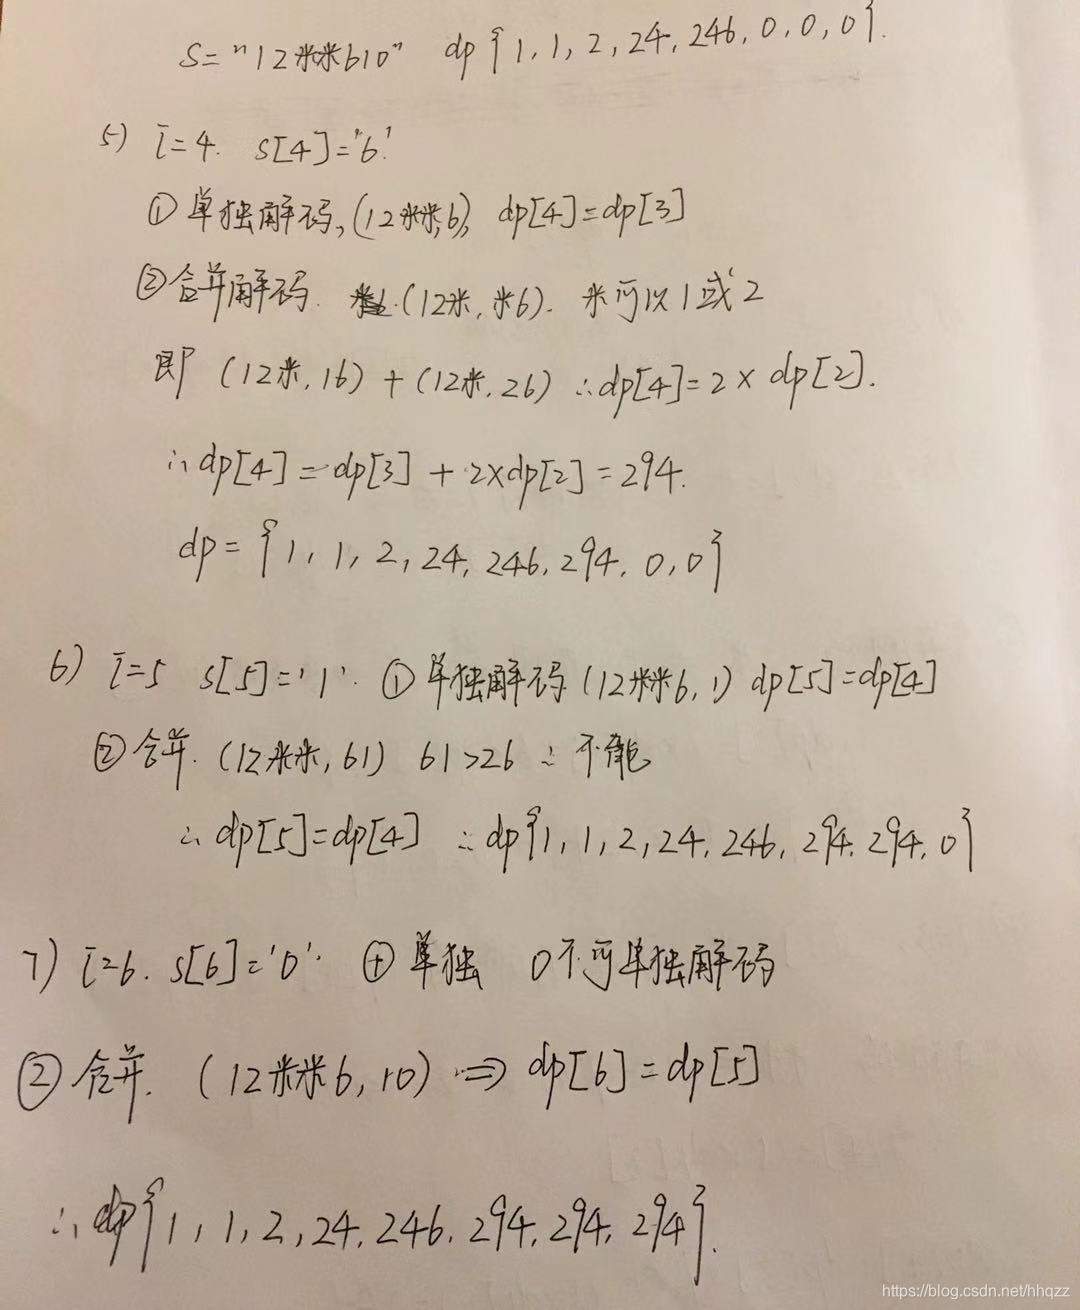 S="12米米610" dp{1,1,2,24,246,0,0,0}.
5) i=4. s[4]='6'.
① 单独解码,(12米米,6), dp[4]=dp[3]
② 合并解码. (12米,米6). 米可以1或2
即 (12米,16)+(12米,26) ∴dp[4]=2×dp[2].
∴dp[4]=dp[3]+2×dp[2]=294.
dp={1,1,2,24,246,294,0,0}
6) i=5 s[5]='1'. ① 单独解码(12米米6,1) dp[5]=dp[4]
② 合并.(12米米,61) 61>26 ∴不能
∴dp[5]=dp[4] ∴dp{1,1,2,24,246,294,294,0}
7) i=6. s[6]='0'. ① 单独 0不可单独解码
② 合并. (12米米6,10) ⇒ dp[6]=dp[5]
∴dp{1,1,2,24,246,294,294,294}.
https://blog.csdn.net/hhqzz